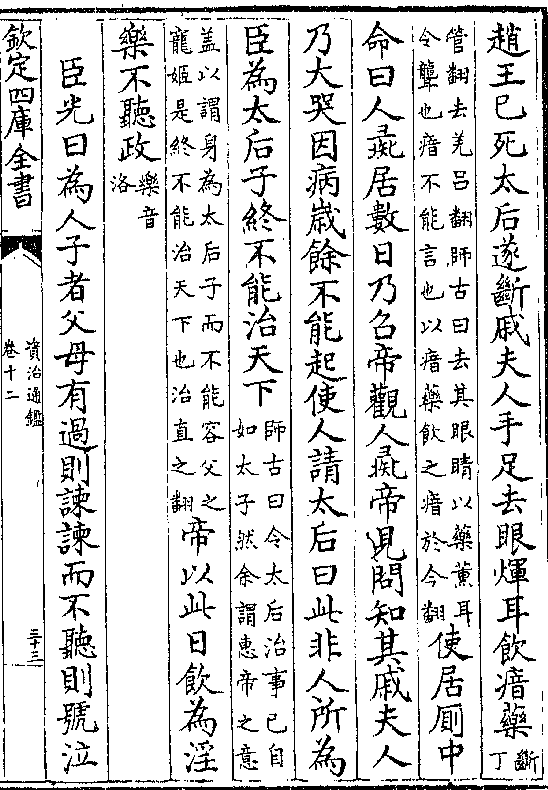 趙王已死太后遂斷戚夫人手足去眼煇耳飲瘖藥斷丁
管翻去羌呂翻師古曰去其眼睛以藥薰耳
令聾也瘖不能言也以瘖藥飲之瘖於今翻使居厠中
命曰人彘居數日乃召帝觀人彘帝見問知其戚夫人
乃大哭因病嵗餘不能起使人請太后曰此非人所為
臣為太后子終不能治天下師古曰令太后治事已自
如太子然余謂惠帝之意
盖以謂身為太后子而不能容父之
寵姬是終不能治天下也治直之翻帝以此日飲為淫
樂不聽政樂音
洛
臣光曰為人子者父母有過則諫諫而不聽則號泣
欽定四庫全書
資治通鑑
卷十二
三十三